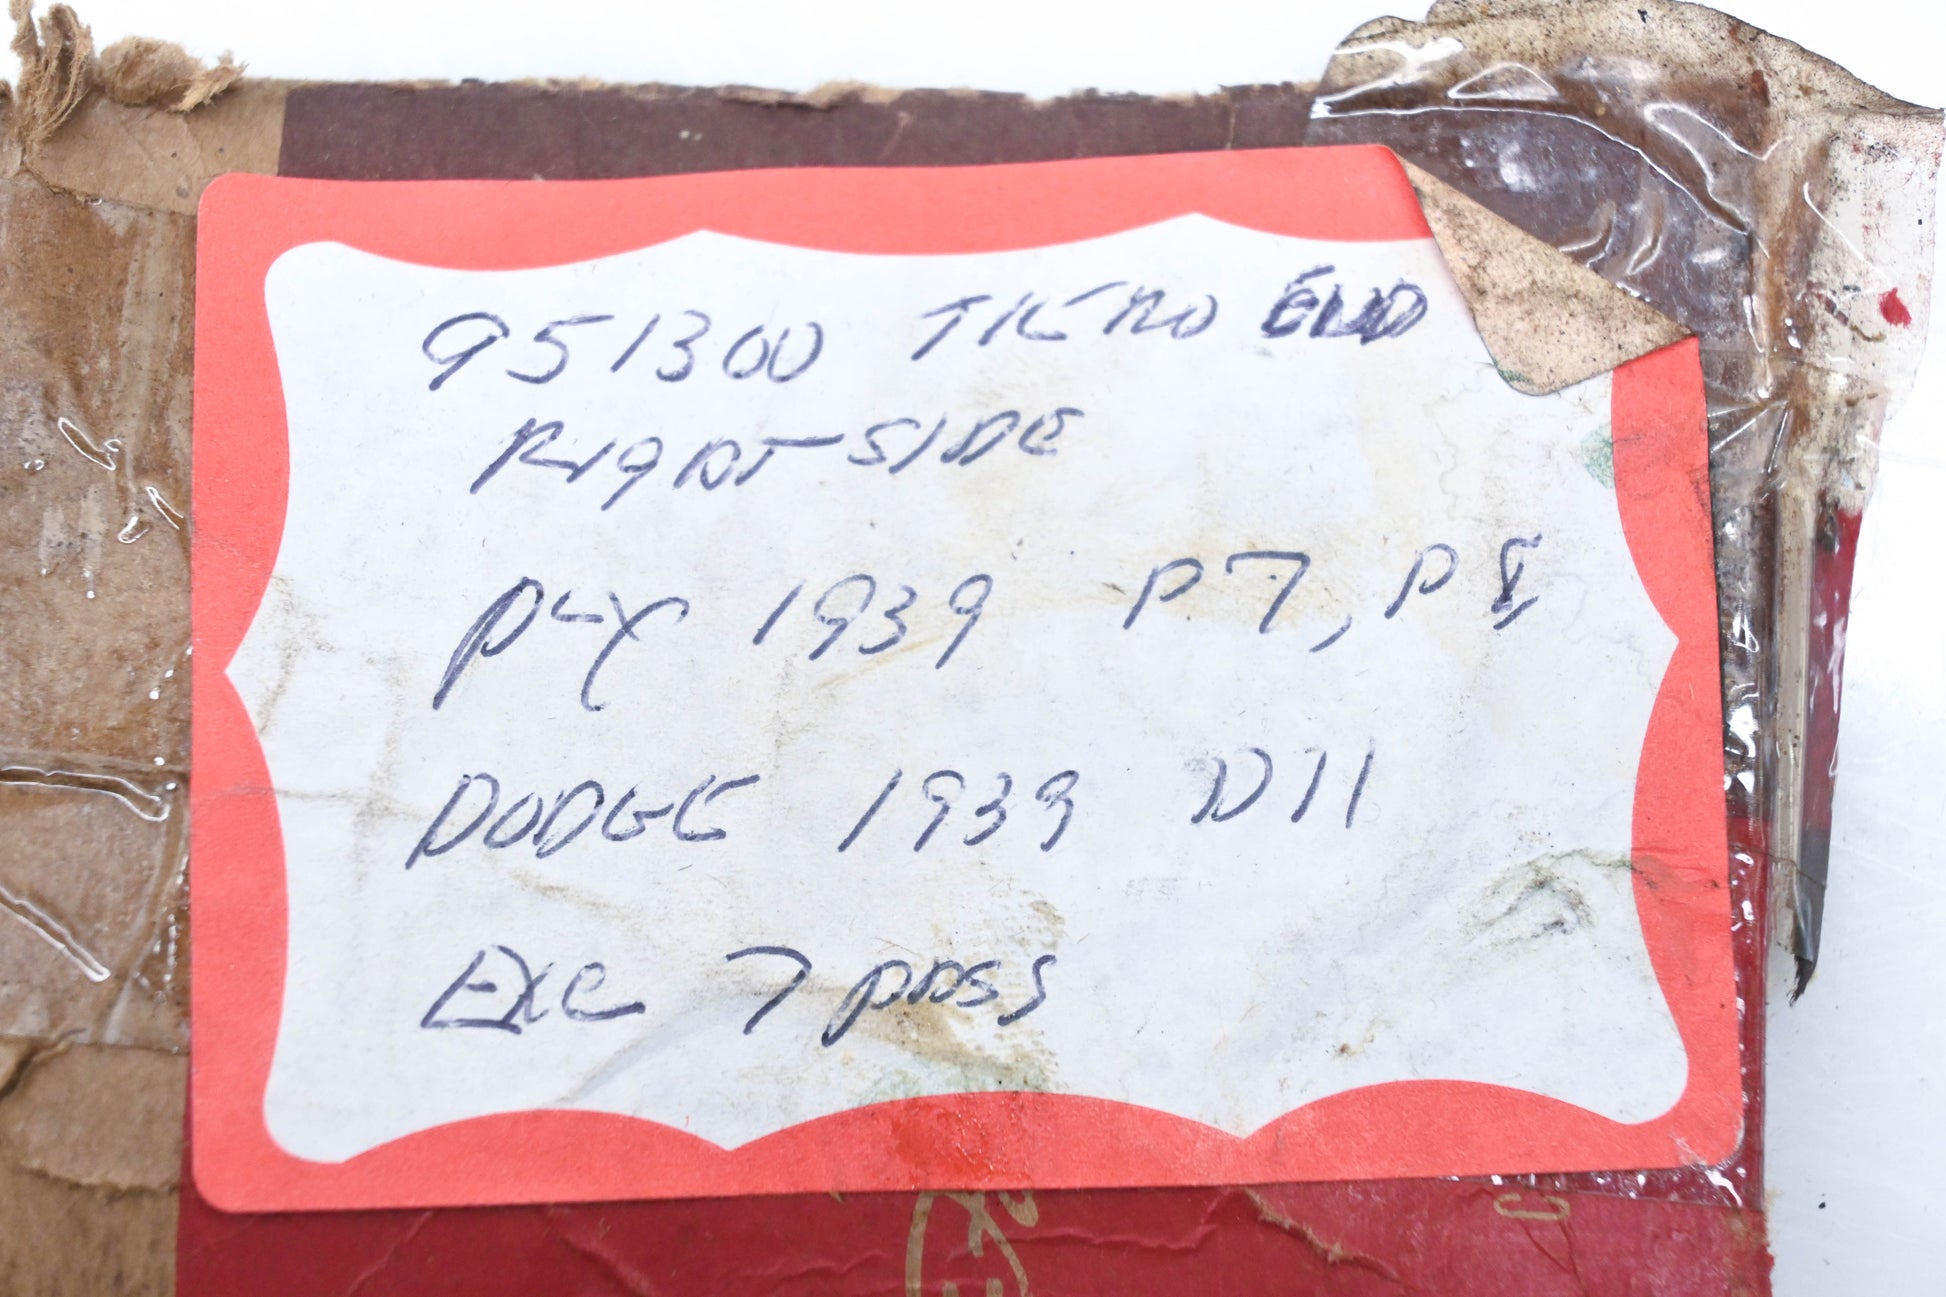 951300 TIE ROD END
RIGHT SIDE
PLY 1939 P7, P8,
DODGE 1939 D11
EXC 7 PASS